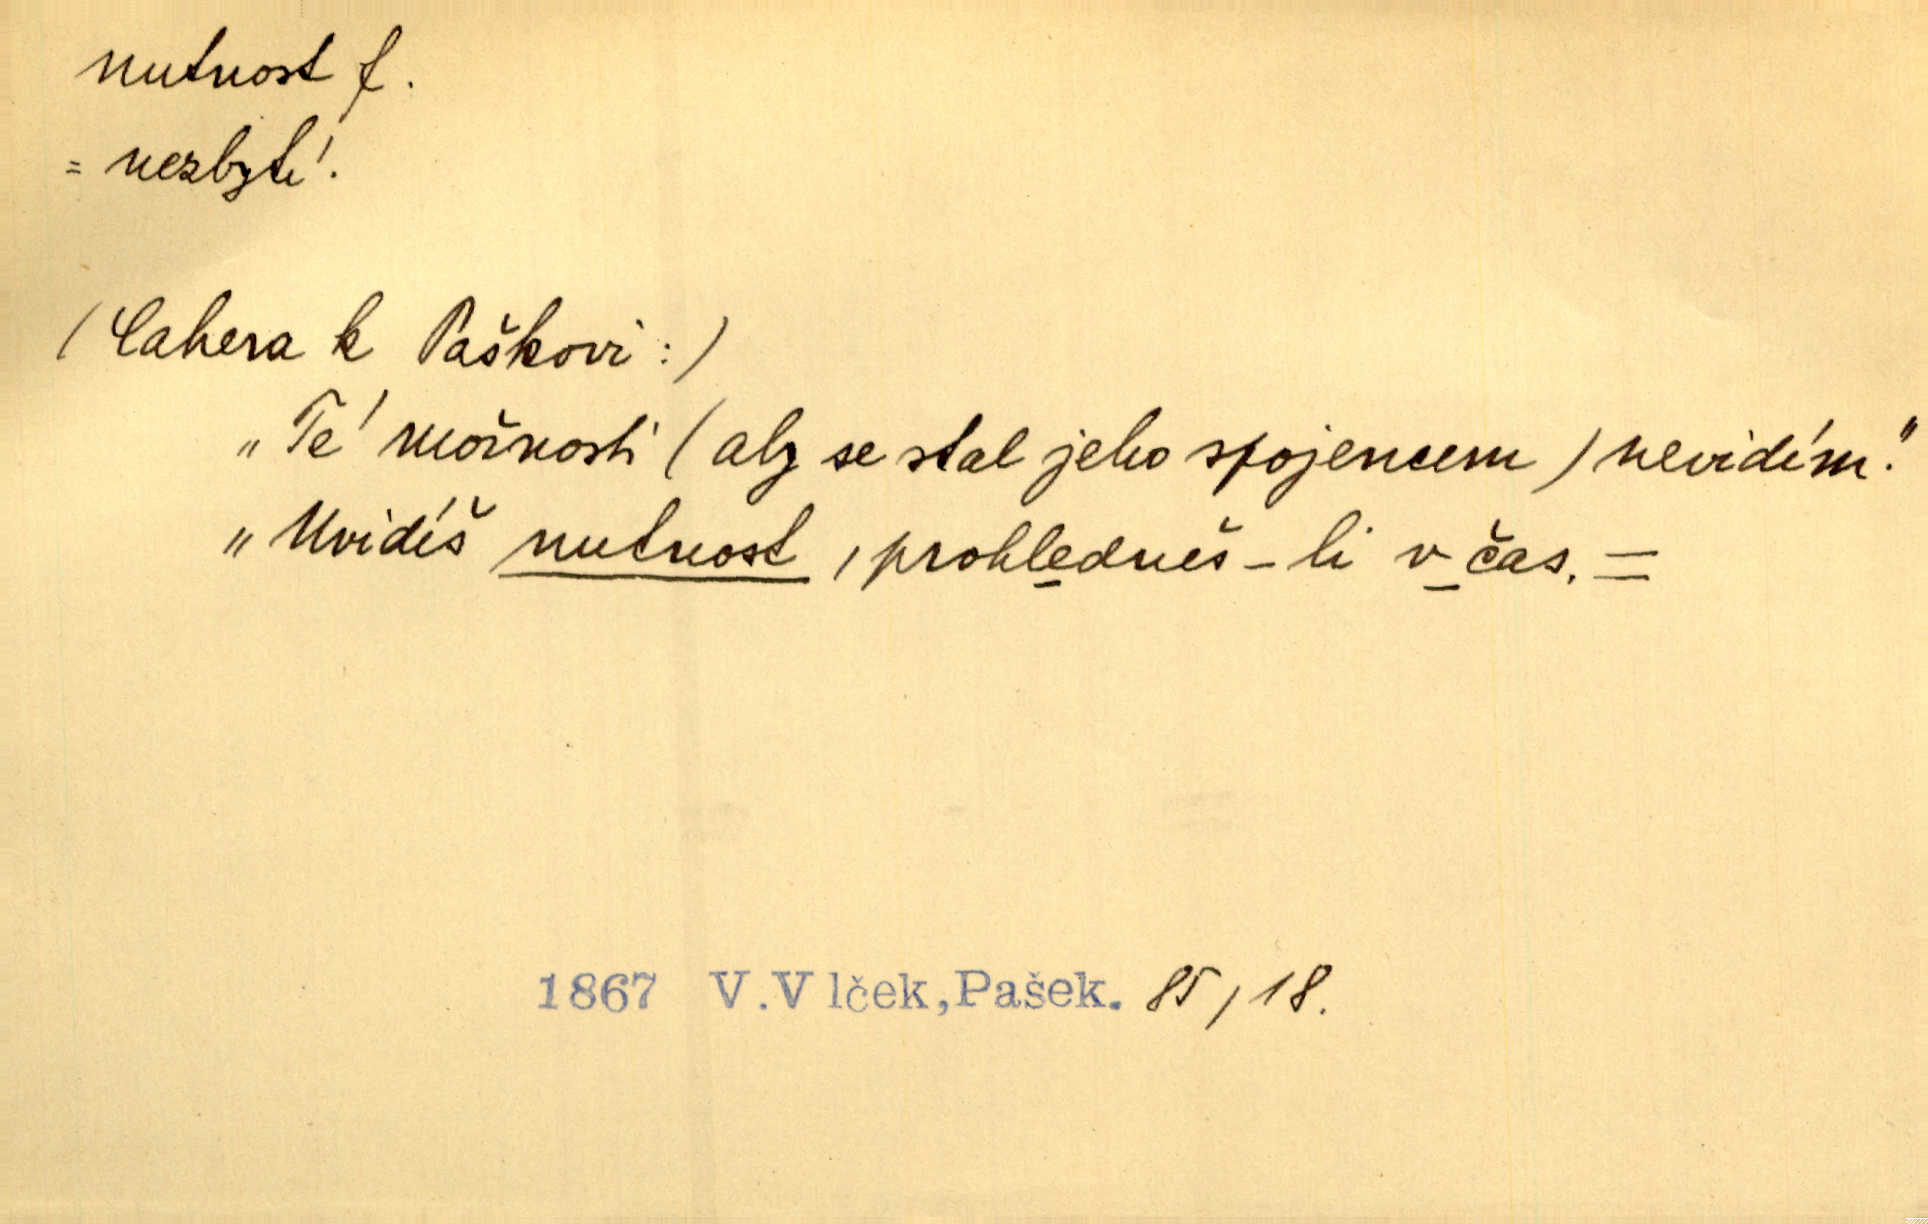 nutnost f.
= nezbytí.
(Cahera k Paškovi:)
„Té možnosti (aby se stal jeho spojencem) nevidím."
„Uvidíš nutnost, prohledneš-li v čas. =
1867 V.Vlček,Pašek. 85, 18.